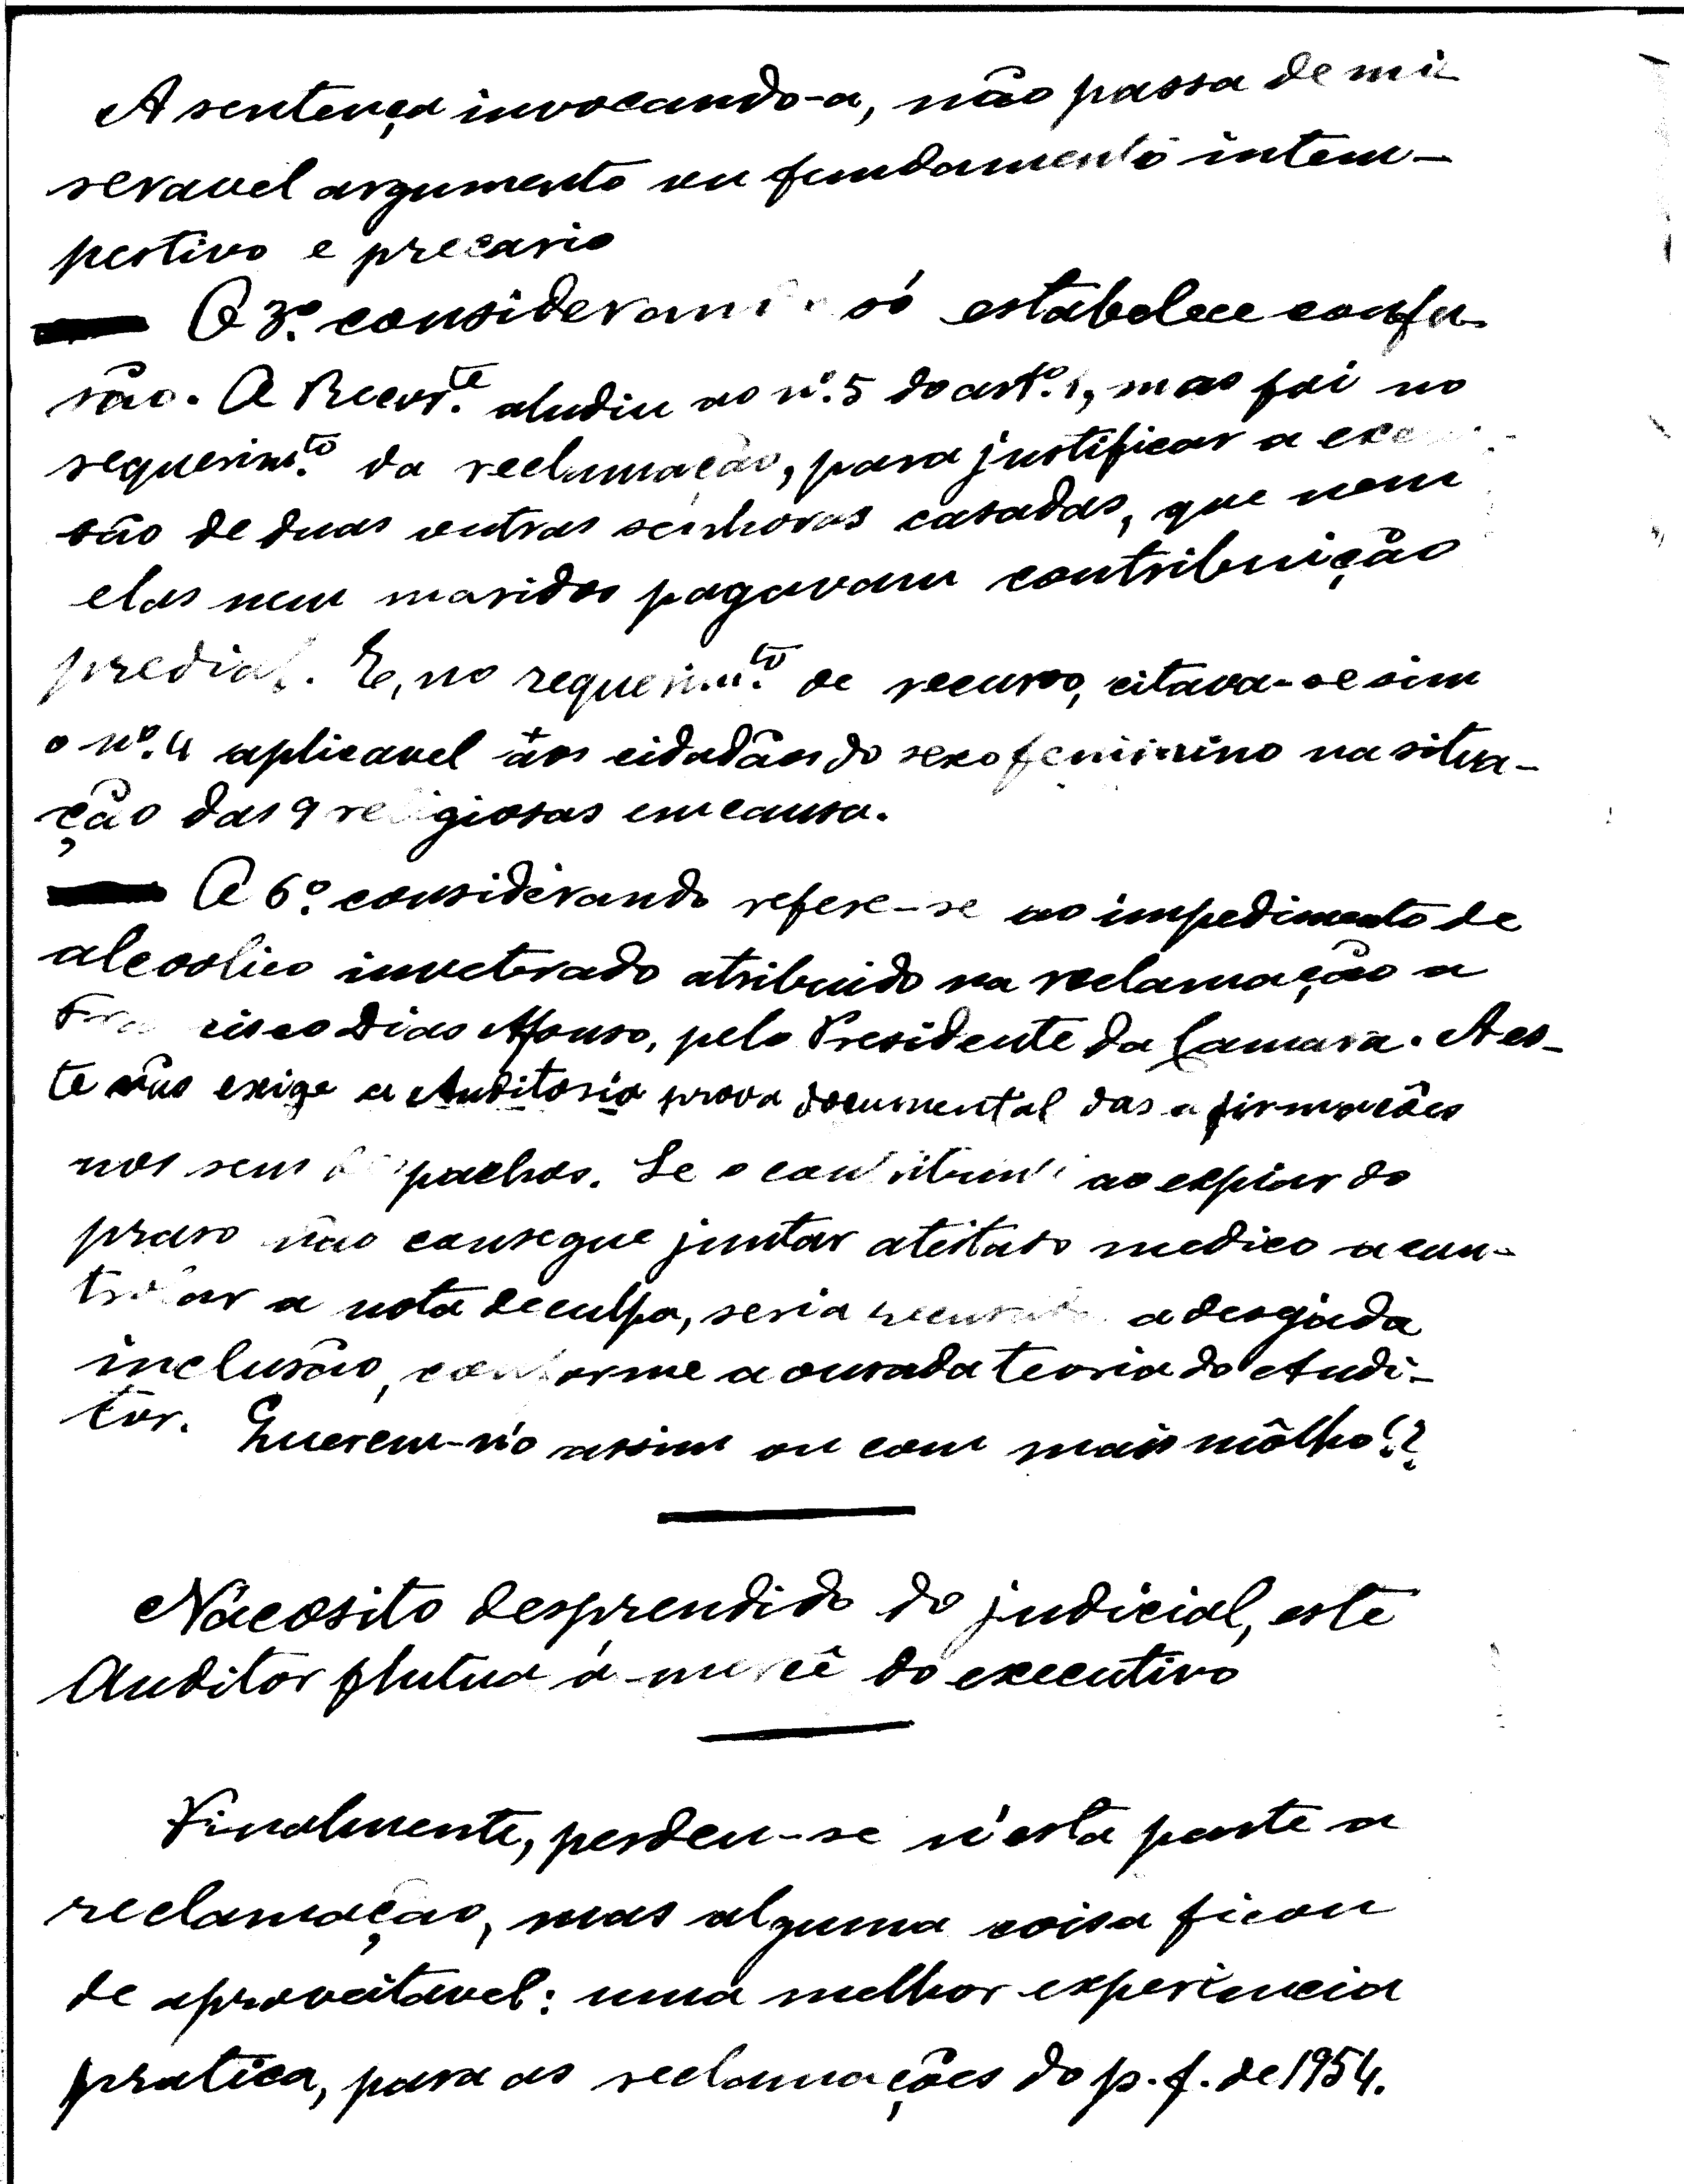 A sentença invocando-a, não passa de mi
seravel argumento ou fundamento intem-
pestivo e precario
O 3º. considerando só estabelece confu-
são. A Recorte. aludiu ao nº. 5 do artº. 1, mas foi no
requerimto. da reclamação, para justificar a
são de duas outras senhoras casadas, que nem
elas nem maridos pagavam contribuição
predial. E, no requerimto. de recurso, citava-se sim
o nº. 4 aplicavel aos cidadãos do sexo feminino na situa-
ção das 9 religiosas em causa.
O 6º. considerando refere-se ao impedimento de
alcoolico inveterado atribuido na reclamação a
Francisco Dias Afonso, pelo Presidente da Camara. A es-
te não exige a Auditoria prova documental das afirmações
nos seus despachos. Se o ao expirar do
praso não consegue juntar atestado medico a con-
trariar a nota de culpa, seria recusada a desejada
inclusão, conforme a ousada teoria do Audi-
tor. Querem-n'o assim ou com mais môlho!?
desprendido do judicial, este
Auditor flutua á mercê do executivo
Finalmente, perdeu-se n'esta parte a
reclamação, mas alguma coisa ficou
de aproveitavel: uma melhor experiencia
pratica, para as reclamações do p. f. de 1954.